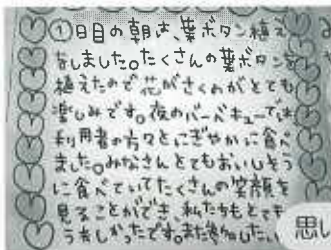 ①日目の朝は、葉ボタン植え
をしました。たくさんの葉ボタンを
植えたので花がさくのがとても
楽しみです。夜のバーベキューでは
利用者の方々とにぎやかに食べ
ました。みなさんとてもおいしそう
に食べていてたくさんの笑顔を
見ることができ、私たちもとても
うれしかったです。また参加したい
思い